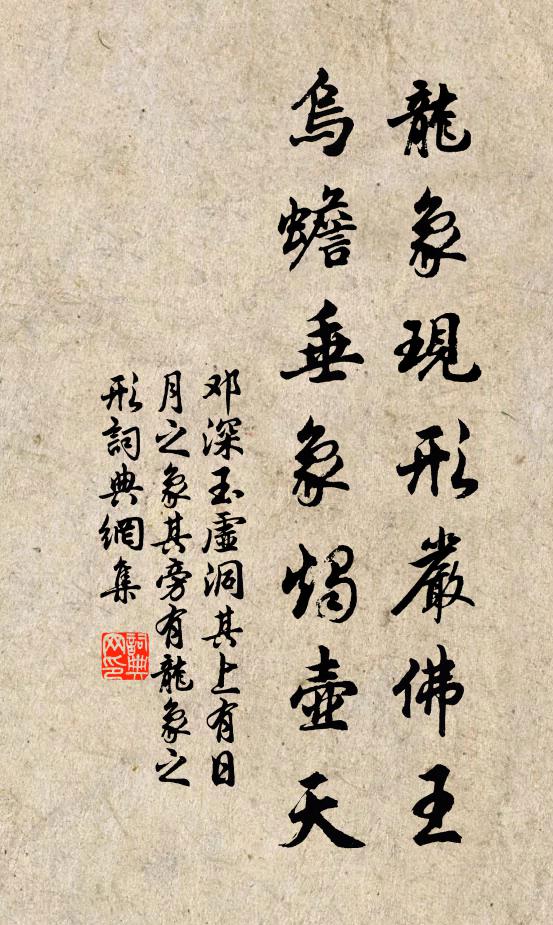 龍象現形嚴佛王
烏蟾垂象燭壺天
邓深玉虛洞其上有日
月之象其旁有龍象之
形詞典網集
詞典
网印